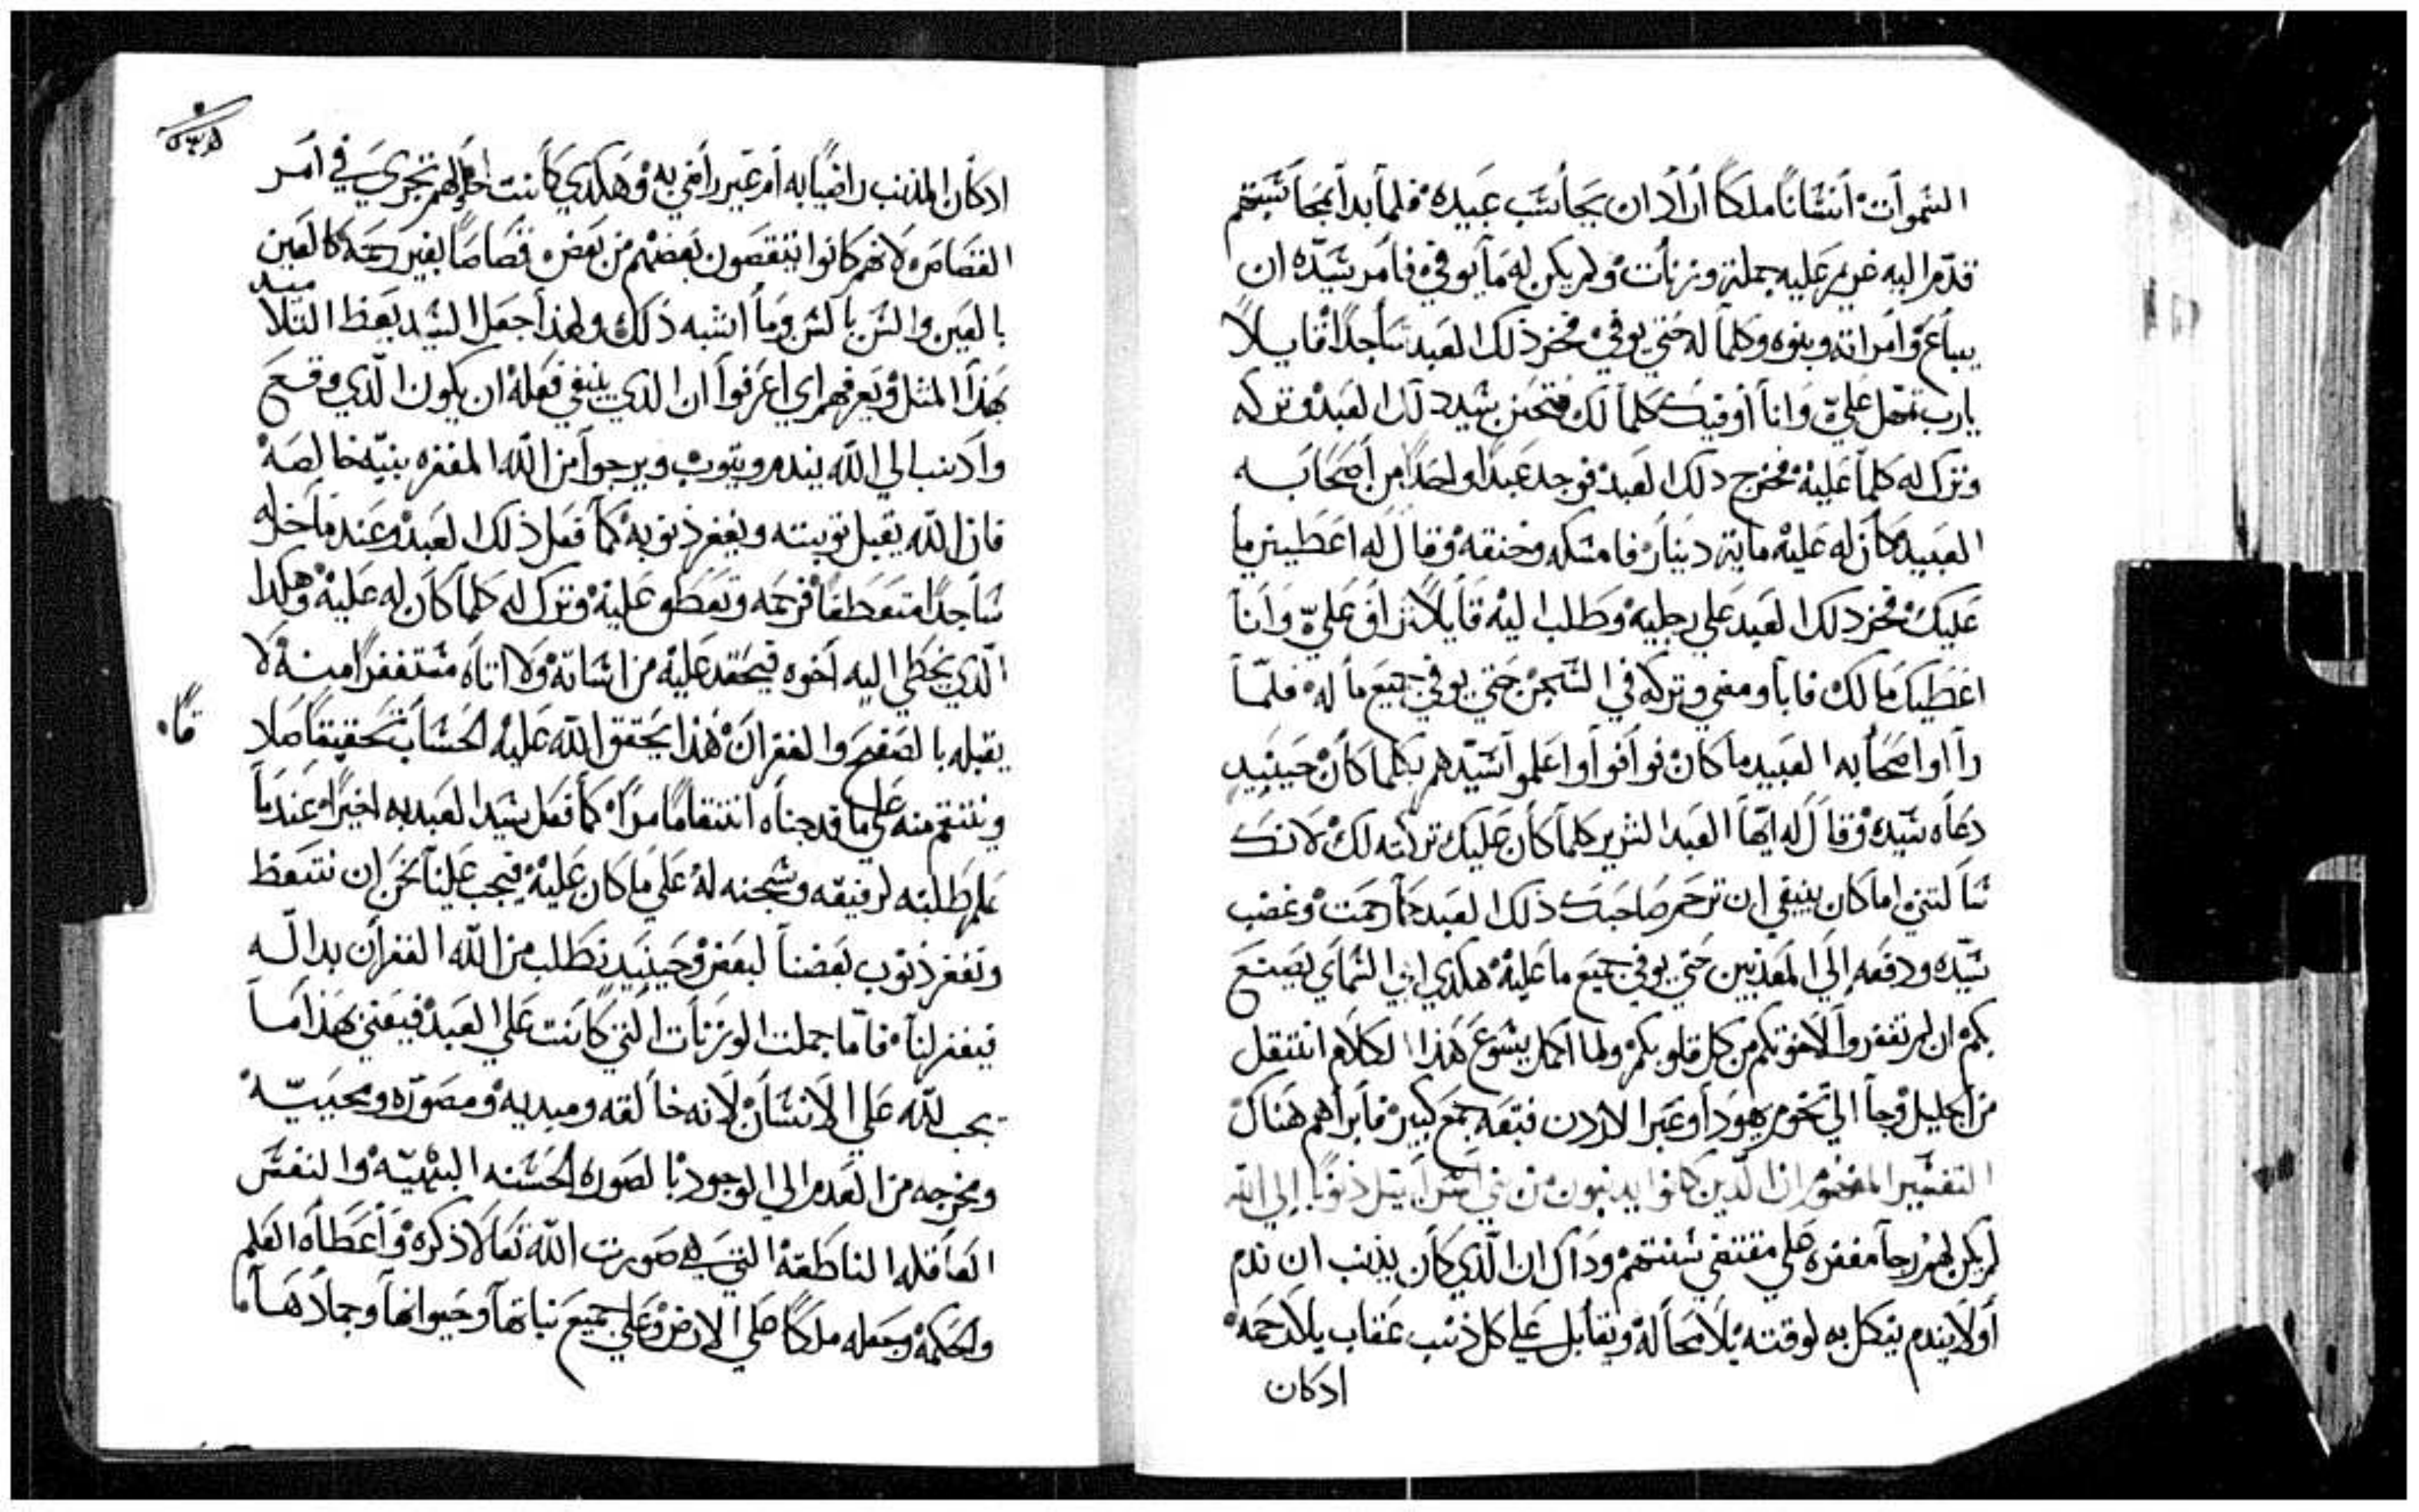 السموات أنسانًا ملكًا أراد ان يحاسب عبيده فلما بدا بمحاسبتهم
قدم اليه غريم عليه جملة وزنات ولم يكن له ما يوفي فامر سيده ان
يباع وامراته وبنوه وكلما له حتي يوفي فخر ذلك العبد ساجدًا قايلاً
يارب تمهل علي وانا أوفيك كلما لك فتحنن سيد دلك العبد وتركه
وترك له كلما عليه فخرج دلك العبد فوجد عبدًا واحدًا من أصحابه
العبيد كان له عليه ماية دينار فامسكه وخنقه وقال له اعطيني ما
عليك فخر دلك العبد علي رجليه وطلب اليه قايلاً تراف علي وانا
اعطيك مالك فابا ومضي وتركه في السجن حتي يوفي جميع ما له فلما
رأاوا اصحابه العبيد ما كان توافوا واعلموا سيدهم بكلما كان حينيدٍ
دعاه سيده وقال له ايها العبد الشرير كلما كان عليك تركته لك لانك
سالتني اما كان ينبغي ان ترحم صاحبك ذلك العبد كما رحمت وغضب
سيده ودفعه الي المعذبين حتي يوفي جميع ما عليه هكدي ابي السماي يصنع
بكم ان لم تغفروا لاخوتكم من كل قلوبكم ولما اكمل يسوع هذا الكلام انتقل
من الجليل وجا الي تخوم يهودا وعبر الاردن فتبعه جمع كبير فابراهم هناك
التفسير ان الدين كانوا يدنبون من بني اسرايل ذنوبًا إلي الله
لم يكن لهم رجا مغفره علي مقتضي سنتهم وداك ان الذي كان يذنب ان ندم
أولا يندم ينكل به لوقته بلا محالة ويقابل علي كل ذنب عقاب بلا رحمه
ادكان
ادكان المذنب راضيًا به أم غير راضي به وهكدي كانت احكامهم تجري في أمر
القصاص لانهم كانوا ينتقصون بعضهم من بعض قصاصًا بغير رحمه كالعين
بالعين والسن بالسن وما اشبه ذلك ولهذا جعل السيد يعظ التلا
ميد
بهذا المثل ويعرفهم اي اعرفوا ان الدي ينبغي فعله ان يكون الذي وقع
وأدنب الي الله يندم ويتوب ويرجوا من الله المغفره بنيه خالصه
فان الله يقبل توبته ويغفر ذنوبه كما فعل ذلك العبد وعندما خر له
ساجدًا متعطفًا فرحمه وتعطف عليه وترك له كلما كان له عليه وهكدا
الذي يخطي اليه أخوه فيحقد عليه من اساته ولا اتاه مستغفرًا منه لا
يقبله بالصفح والغفران هذا يحقق الله عليه الحساب تحقيقًا
قا
وينتقم منه علي ما قد جناه انتقامًا مرًا كما فعل سيد العبد به اخيرًا عندما
علم طلبته لرفيقه وسجنه له علي ما كان عليه فيجب علينا نحن ان نتعظ
ونغفر ذنوب بعضنا لبعض وحينيد نطلب من الله الغفران
فيغفر لنا فاما جملت الوزنات التي كانت علي العبد فيعني بهذا ما
يجب لله علي الانسان لانه خالقه ومبديه ومصوره ومحييه
ومخرجه من العدم الي الوجود بالصوره الحسنه البهيه والنفس
العاقله الناطقة التي هي صورت الله تعالا ذكره وأعطاه العلم
والحكمة وجعله ملكًا علي الارض وعلي جميع نباتها وحيوانها وجمادها